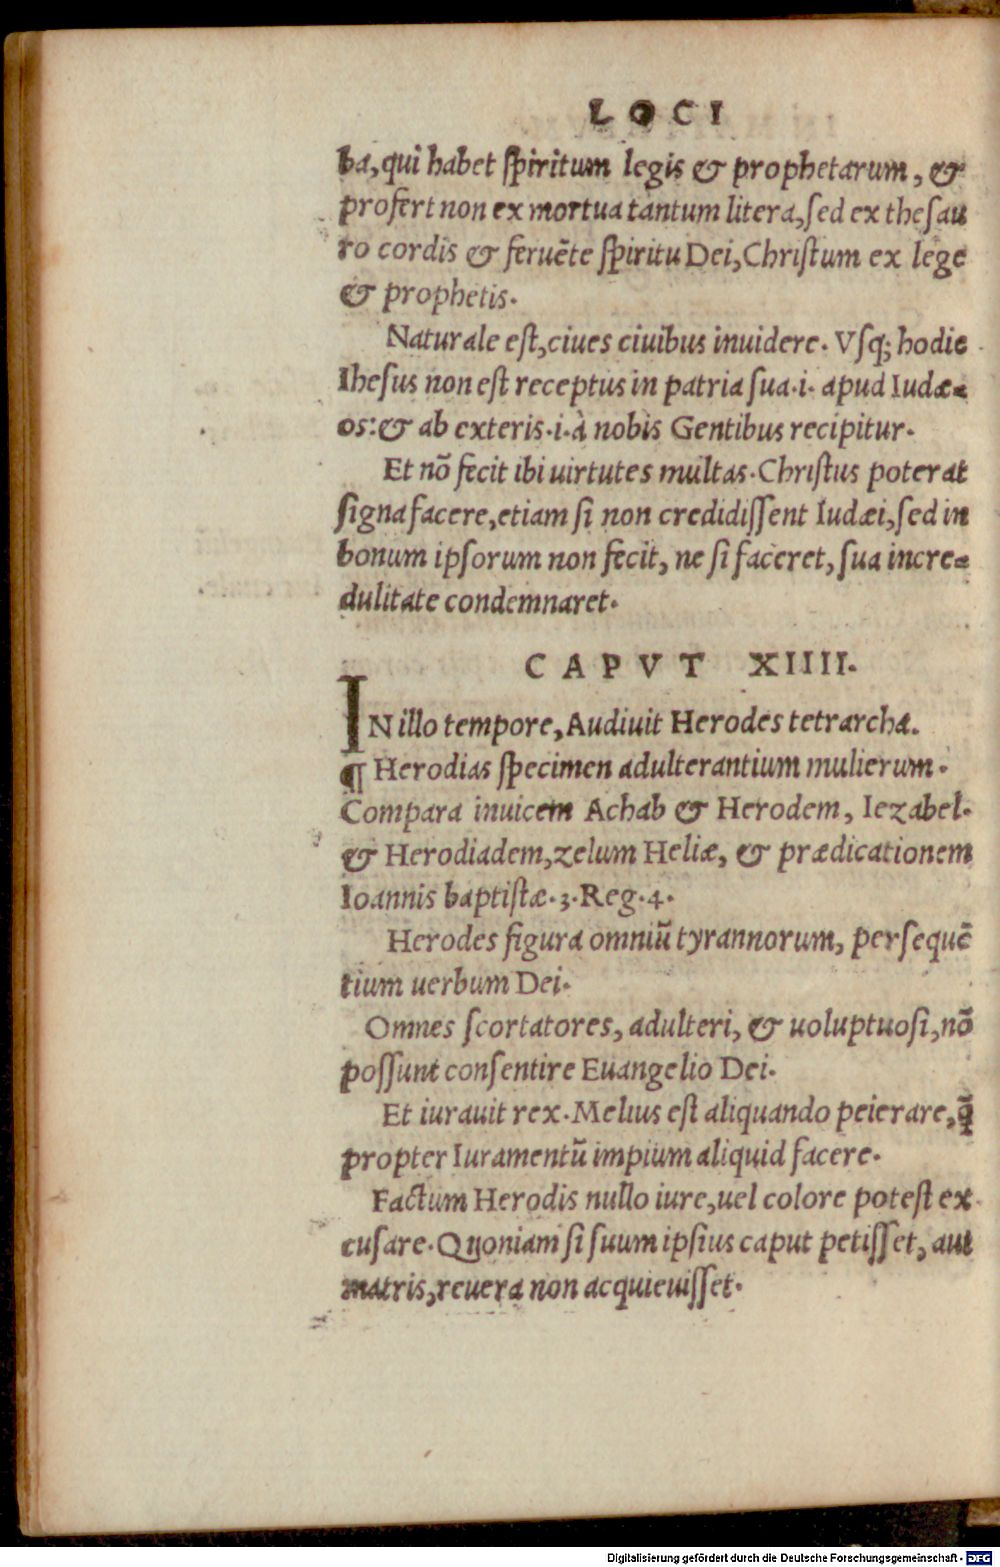 LOCI
ba, qui habet spiritum legis & prophetarum, &
profert non ex mortua tantum litera, sed ex thesau
ro cordis & feruẽte spiritu Dei, Christum ex lege
& prophetis.
Naturale est, ciues ciuibus inuidere. Vsq; hodie
Ihesus non est receptus in patria sua .i. apud Iudæ-
os: & ab exteris .i. à nobis Gentibus recipitur.
Et nõ fecit ibi uirtutes multas. Christus poterat
signa facere, etiam si non credidissent Iudæi, sed in
bonum ipsorum non fecit, ne si faceret, sua incre-
dulitate condemnaret.
CAPVT XIIII.
IN illo tempore, Audiuit Herodes tetrarcha.
¶ Herodias specimen adulterantium mulierum.
Compara inuicem Achab & Herodem, Iezabel.
& Herodiadem, zelum Heliæ, & prædicationem
Ioannis baptistæ. 3. Reg. 4.
Herodes figura omniũ tyrannorum, persequẽ
tium uerbum Dei.
Omnes scortatores, adulteri, & uoluptuosi, nõ
possunt consentire Euangelio Dei.
Et iurauit rex. Melius est aliquando peierare, q̃
propter Iuramentũ impium aliquid facere.
Factum Herodis nullo iure, uel colore potest ex
cusare. Quoniam si suum ipsius caput petisset, aut
matris, reuera non acquieuisset.
Digitalisierung gefördert durch die Deutsche Forschungsgemeinschaft - DFG